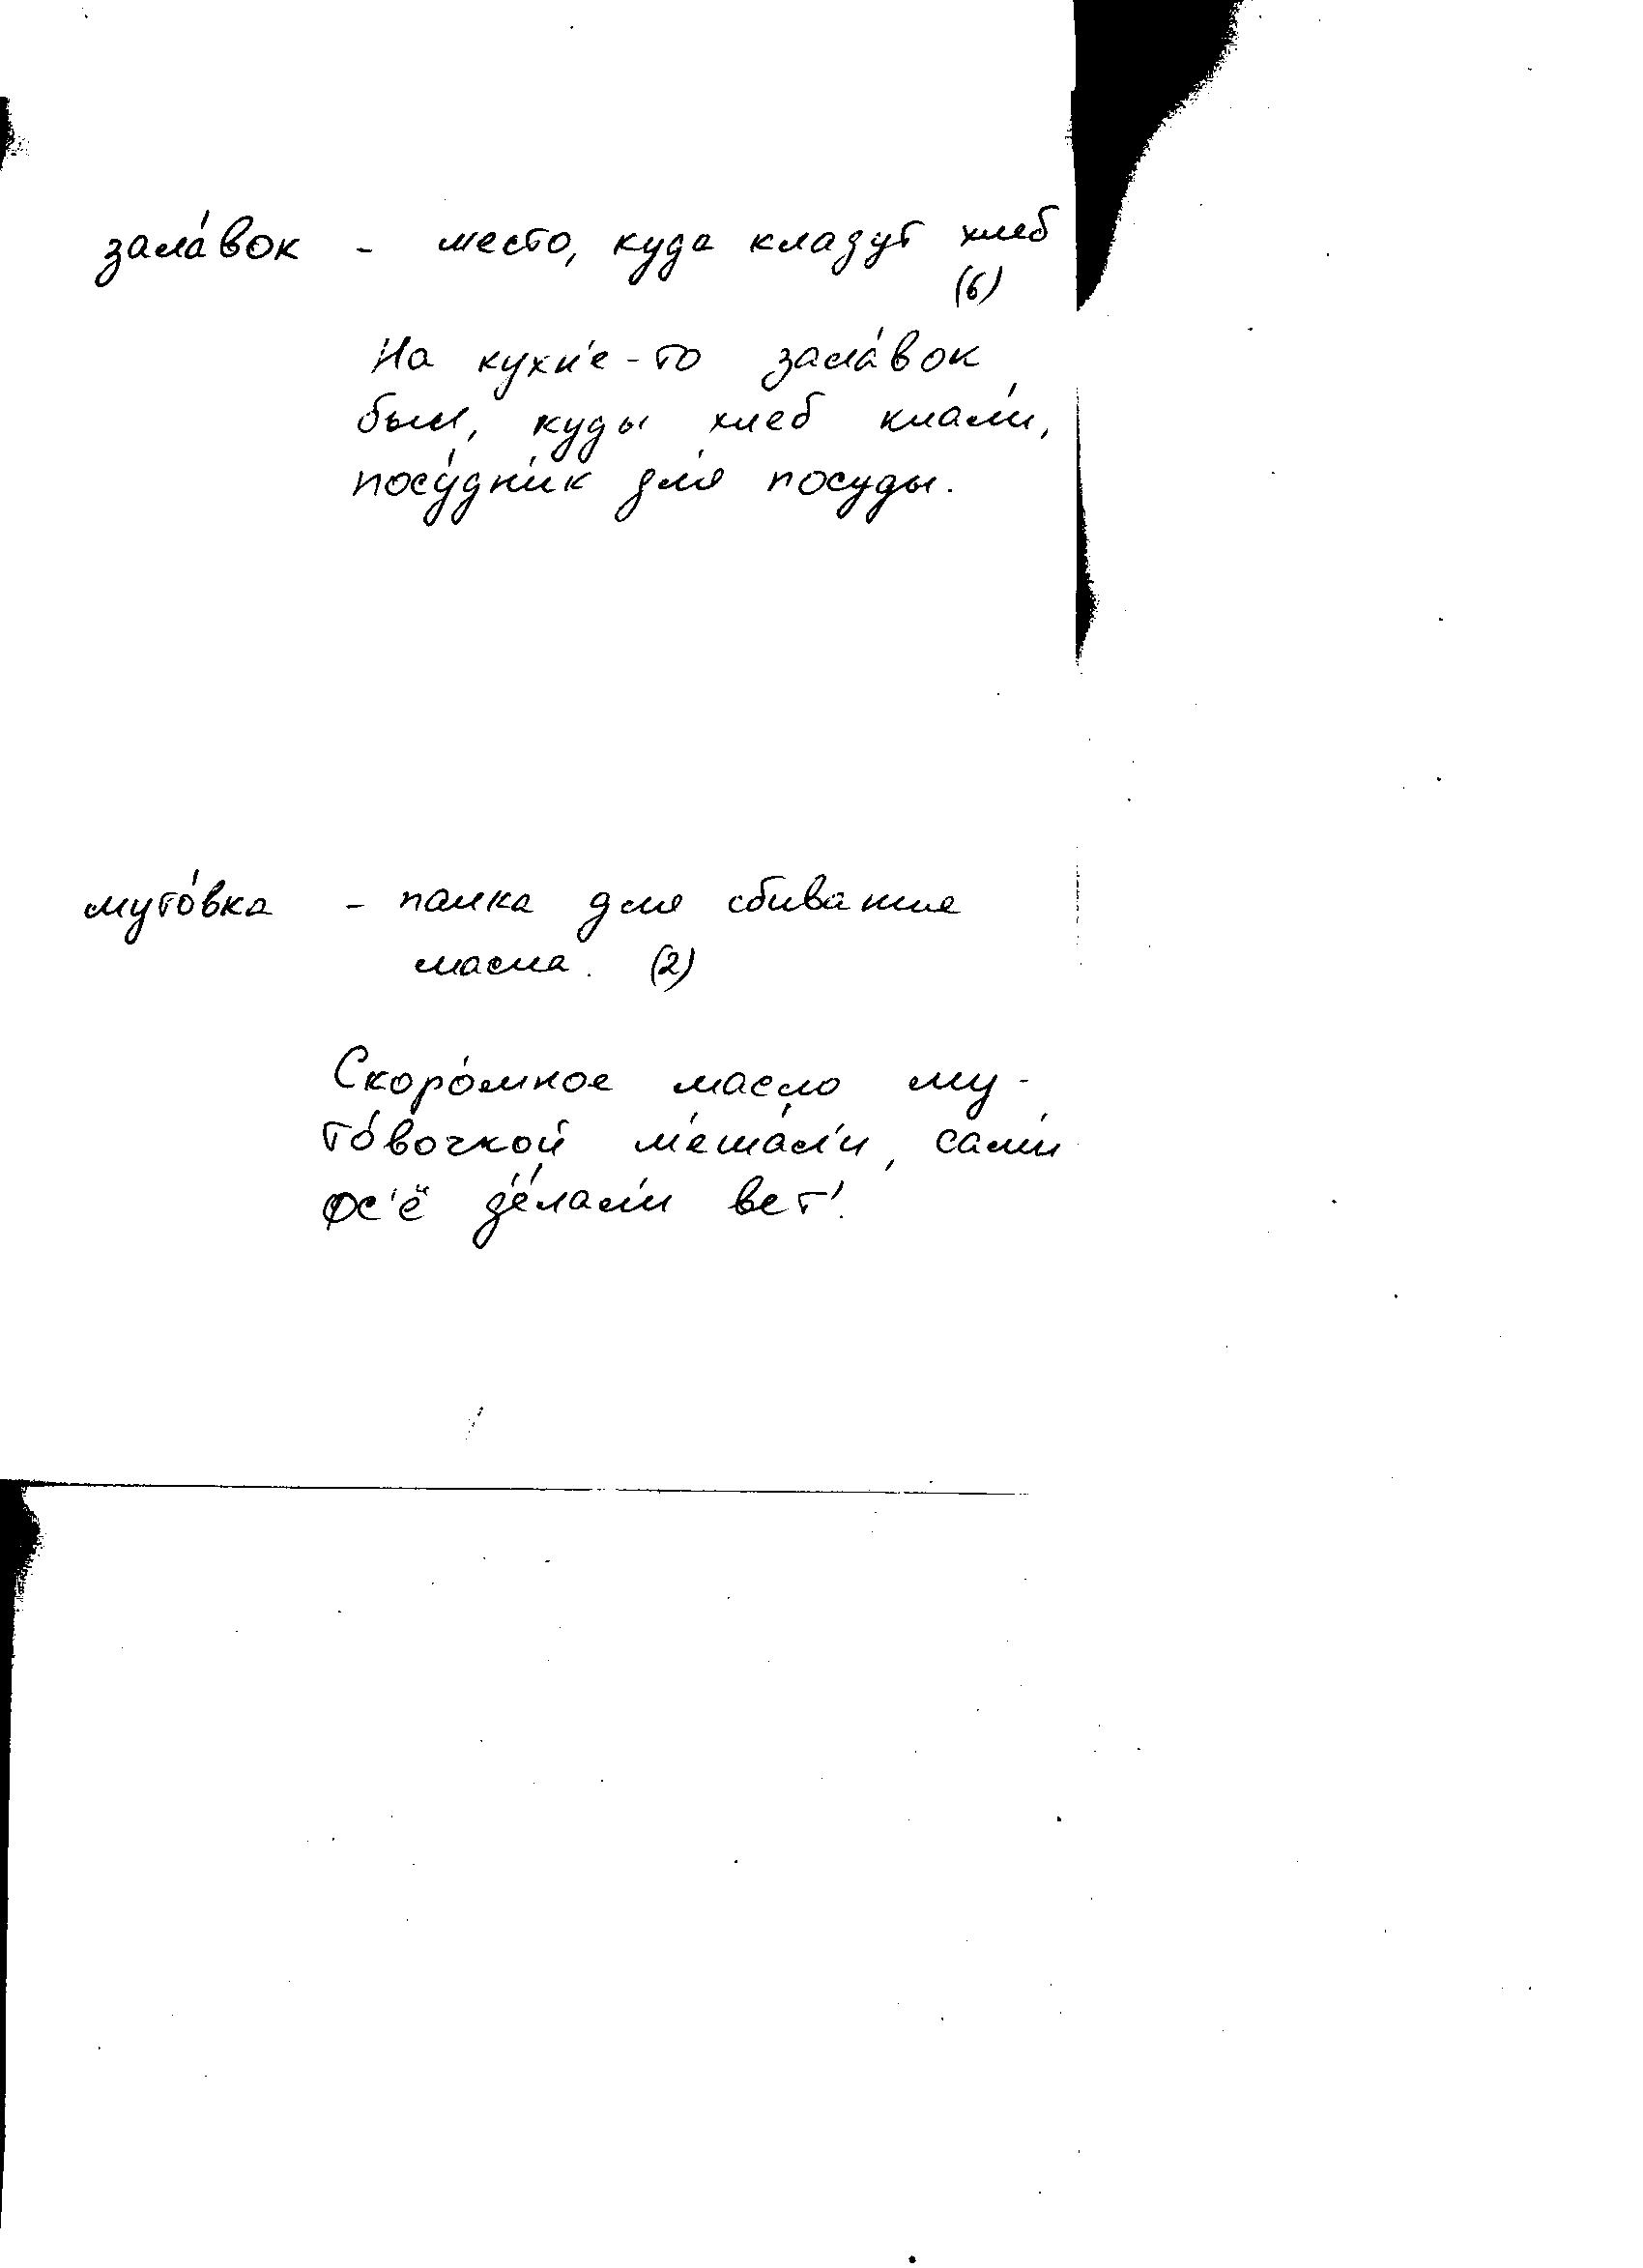 зала́вок - место, куда кладут хлеб
(6)
На кухн'е-то зала́вок
был, куды хлеб клал'и,
посу́дн'ик дл'я посуды.
муто́вка - палка для сбивания
масла. (2)
Скоро́мное масло му-
то́вочкой м'еша́л'и, сам'и
фс'ё д'е́лал'и вет'.